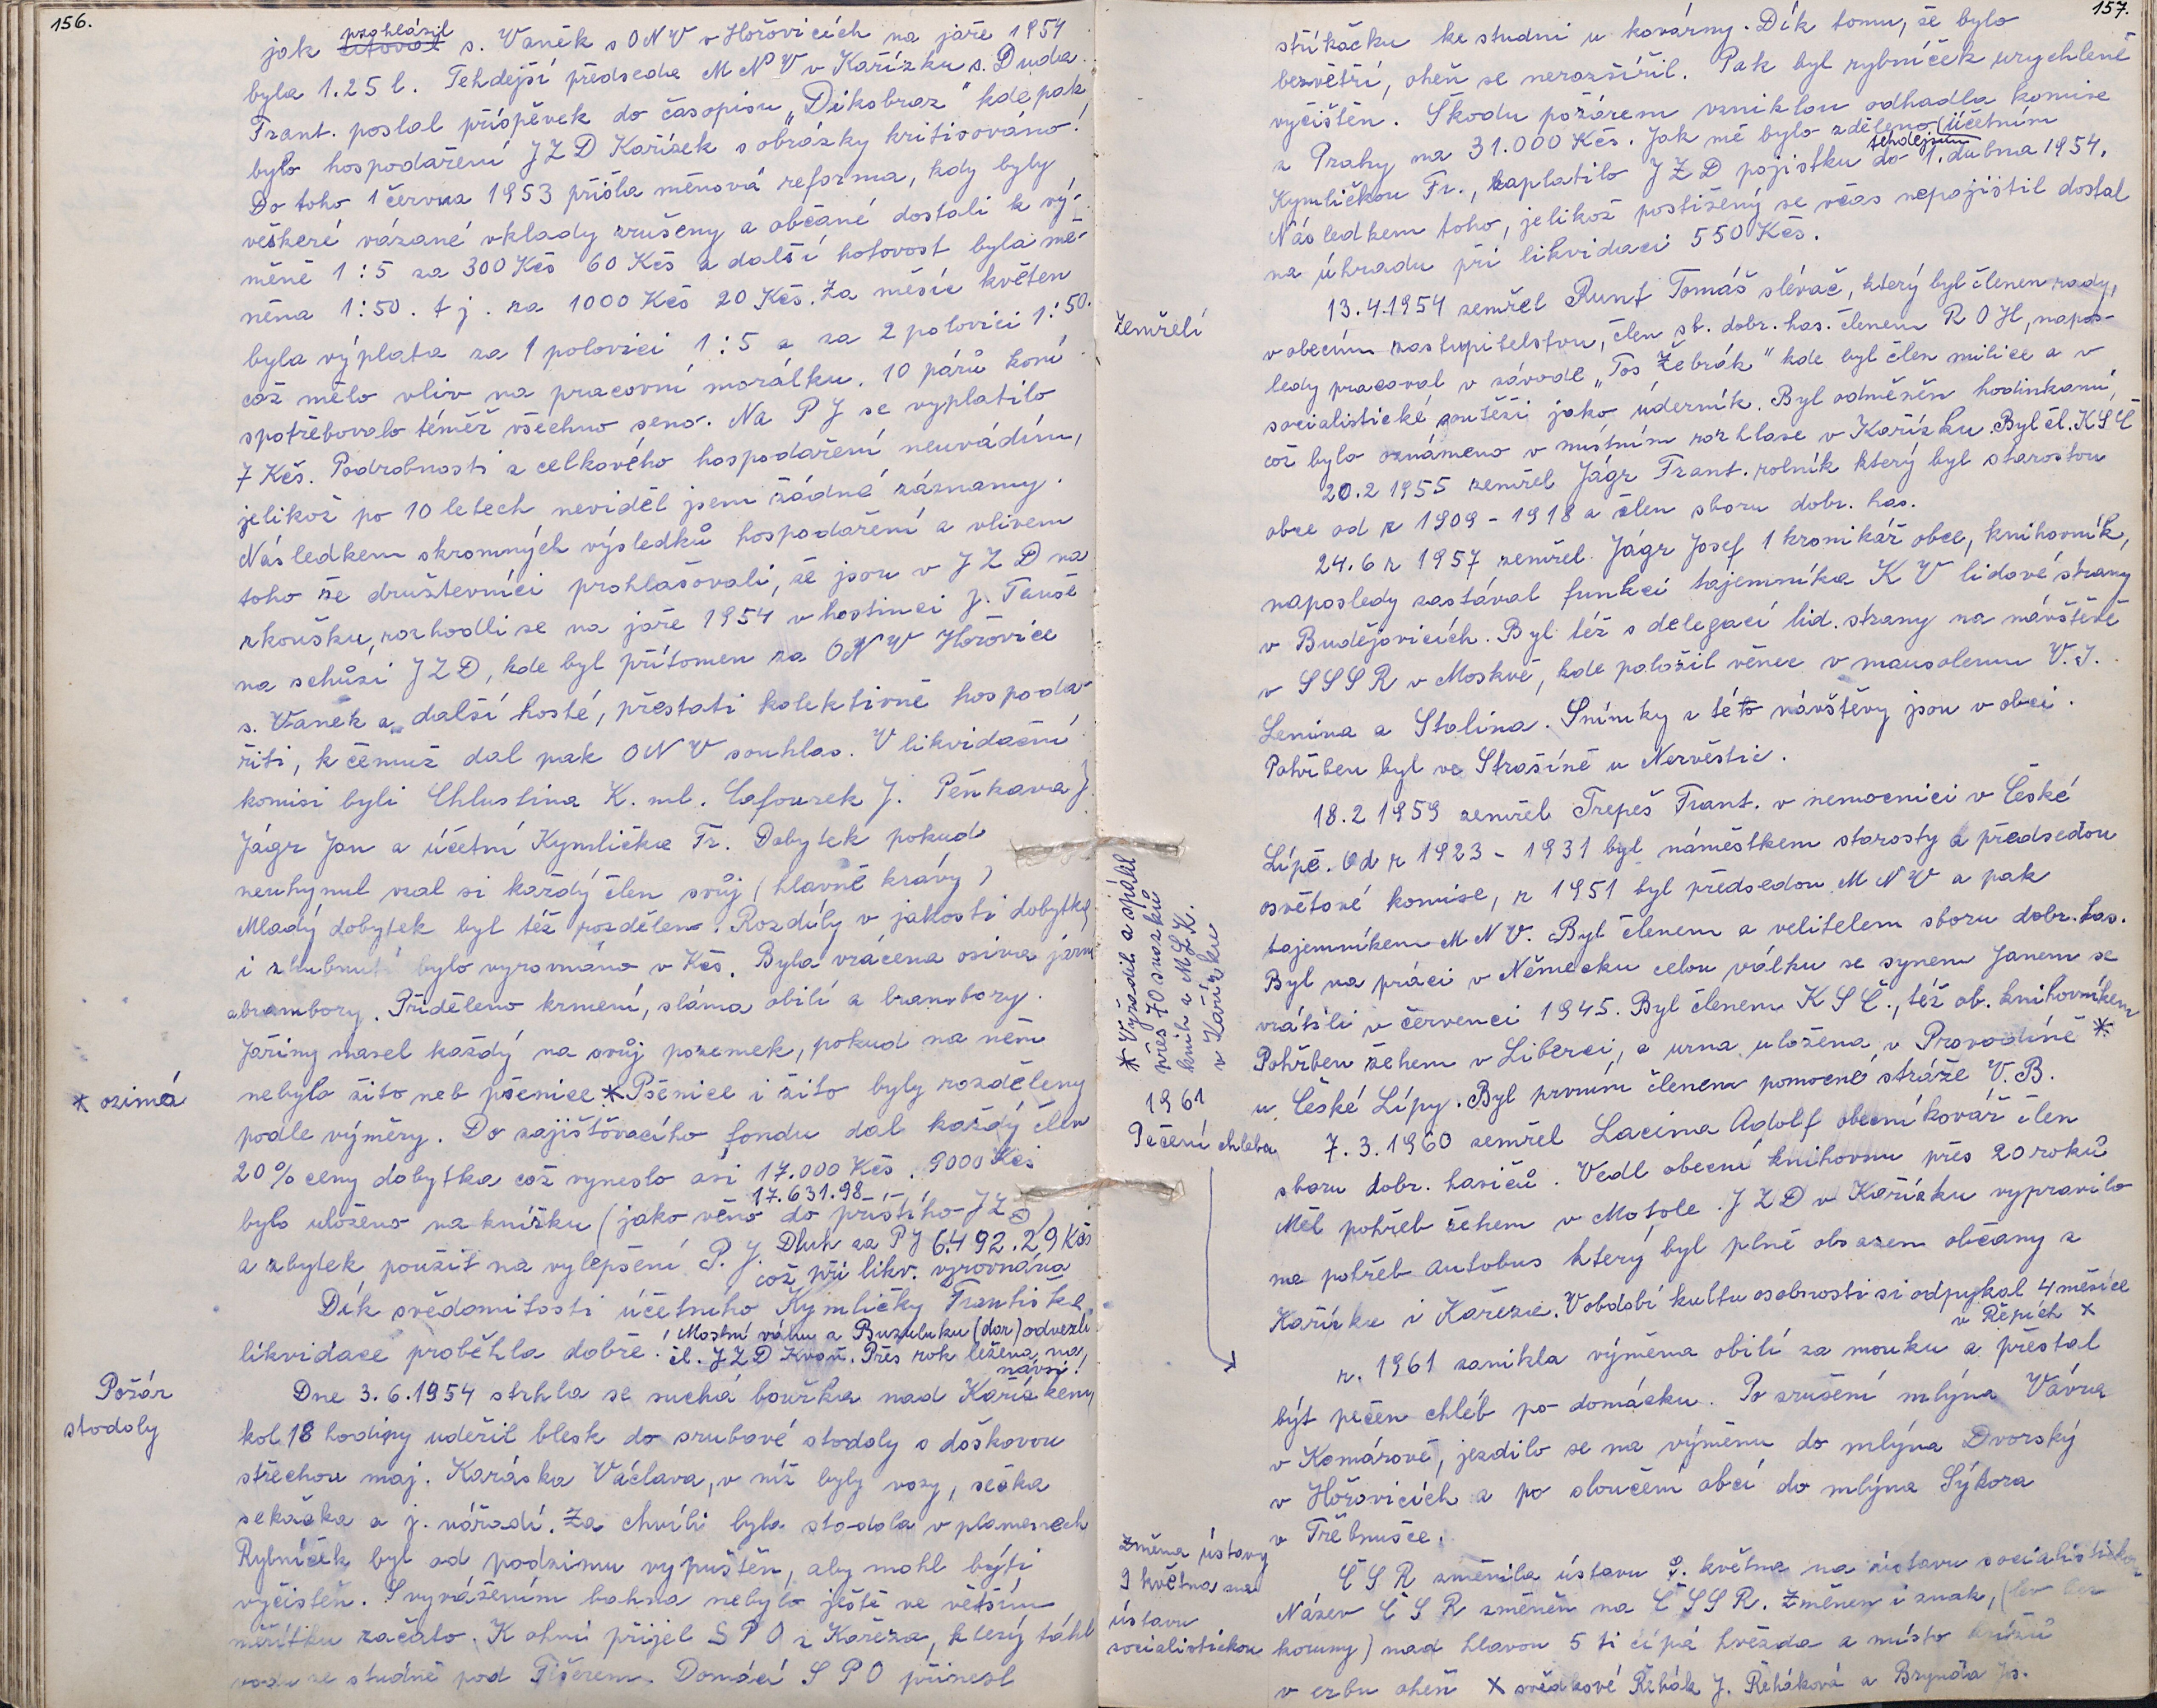 156.
jak prohlásil s. Vaněk s ONV v Hořovicích na jaře 1954
byla 1.25 l. Tehdejší předseda MNV v Kařízku s. Duda
Frant. poslal příspěvek do časopisu „Dikobraz" kde pak
bylo hospodaření JZD Kařízek s obrázky kritisováno!
Do toho 1 června 1953 přišla měnová reforma, kdy byly
veškeré vázané vklady zrušeny a občané dostali k vý-
měně 1:5 za 300 Kčs 60 Kčs a další hotovost byla mě-
něna 1:50. t j. za 1000 Kčs 20 Kčs. Za měsíc květen
byla výplata za 1 polovici 1:5 a za 2 polovici 1:50.
což mělo vliv na pracovní morálku. 10 párů koní
spotřebovalo téměř všechno seno. Na PJ se vyplatilo
7 Kčs. Podrobnosti z celkového hospodaření neuvádím,
jelikož po 10 letech neviděl jsem žádné záznamy.
Následkem skromných výsledků hospodaření a vlivem
toho že družstevníci prohlašovali, že jsou v JZD na
zkoušku, rozhodli se na jaře 1954 v hostinci p. Tauše
na schůzi JZD, kde byl přítomen za ONV Hořovice
s. Vaněk a další hosté, přestati kolektivně hospoda-
řiti, k čemuž dal pak ONV souhlas. V likvidační
komisi byli Chlustina K. ml. Cafourek J. Pěnkava J.
Jágr Jan a účetní Kymlička Fr. Dobytek pokud
neuhynul vzal si každý člen svůj (hlavně krávy)
Mladý dobytek byl též rozdělen. Rozdíly v jakosti dobytka
i zhubnutí bylo vyrovnáno v Kčs. Byla vrácena osiva jarní
a brambory. Přiděleno krmení, sláma obilí a brambory.
Jařiny nasel každý na svůj pozemek, pokud na něm
* ozimá
nebylo žito neb pšenice * Pšenice i žito byly rozděleny
podle výměry. Do zajišťovacího fondu dal každý člen
20% ceny dobytka což vyneslo asi 17.000 Kčs. 9000 Kčs
17.631.98
bylo uloženo na knížku (jako věno do příštího JZD)
a zbytek použit na vylepšení P. J. Dluh za PJ 6.492.29 Kčs
což při likv. vyrovnáno
Dík svědomitosti účetního Kymličky Františka
likvidace proběhla dobře! Mostní váhu z Buzuluku (dar) odvezli
čl. JZD Kvaň. Přes rok ležena na
návsi!
Požár
stodoly
Dne 3.6.1954 strhla se suchá bouřka nad Kařízkem,
kol 18 hodiny udeřil blesk do srubové stodoly s doškovou
střechou maj. Karáska Václava, v níž byly vozy, sečka
sekačka a j. nářadí. Za chvíli byla stodola v plamenech
Rybníček byl od podzimu vypuštěn, aby mohl býti
vyčištěn. S vyvážením bahna nebylo ještě ve větším
měřítku začato. K ohni přijel SPO z Kařeza, který táhl
vodu ze studně pod Fišerem. Domácí SPO přinesl
157.
stříkačku ke studni u kovárny. Dík tomu, že bylo
bezvětří, oheň se nerozšířil. Pak byl rybníček urychleně
vyčištěn. Škodu požárem vzniklou odhadla komise
z Prahy na 31.000 Kčs. Jak mě bylo zděleno (účetním
tehdejším
Kymličkou Fr., zaplatilo JZD pojistku do 1. dubna 1954.
Následkem toho, jelikož postižený se včas nepojistil dostal
na úhradu při likvidaci 550 Kčs.
Zemřelí
13.4.1954 zemřel Runt Tomáš slévač, který byl členem rady,
v obecním zastupitelstvu, člen sb. dobr. has. členem ROH, napos-
ledy pracoval v závodě „Tos Žebrák" kde byl člen milice a v
socialistické soutěži jako úderník. Byl odměněn hodinkami,
což bylo oznámeno v místním rozhlase v Kařízku. Byl čl. KSČ
20.2 1955 zemřel Jágr Frant. rolník který byl starostou
obce od r 1909 - 1918 a člen sboru dobr. has.
24.6 r 1957 zemřel Jágr Josef 1 kronikář obce, knihovník,
naposledy zastával funkci tajemníka KV lidové strany
v Budějovicích. Byl též s delegací lid. strany na návštěvě
v SSSR v Moskvě, kde položil věnec v mausoleum V.I.
Lenina a Stalina. Snímky z této návštěvy jsou v obci.
Pohřben byl ve Strašíně u Nezvěstic.
18.2 1959 zemřel Trepeš Frant. v nemocnici v České
Lípě. Od r 1923 - 1931 byl náměstkem starosty a předsedou
osvětové komise, r 1951 byl předsedou MNV a pak
tajemníkem MNV. Byl členem a velitelem sboru dobr. has.
Byl na práci v Německu celou válku se synem Janem se
vrátili v červenci 1945. Byl členem KSČ., též ob. knihovníkem
Pohřben žehem v Liberci, a urna uložena v Provodíně *
u České Lípy. Byl prvním členem pomocné stráže V.B.
* Vyřadil a spálil
přes 70 svazků
knih z MLK.
v Kařízku
1961
Pečení chleba
7.3.1960 zemřel Lacina Adolf obecní kovář člen
sboru dobr. hasičů. Vedl obecní knihovnu přes 20 roků
Měl pohřeb žehem v Motole. JZD v Kařízku vypravilo
na pohřeb autobus který byl plně obsazen občany z
Kařízku i Kařeza. V období kultu osobnosti si odpykal 4 měsíce
v Řepích x
r. 1961 zanikla výměna obilí za mouku a přestal
být pečen chléb po domácku. Po zrušení mlýna Vávra
v Komárově, jezdilo se na výměnu do mlýna Dvorský
v Hořovicích a po sloučení obcí do mlýna Sýkora
v Třebnušce.
Změna ústavy
9 května na
ústavu
socialistickou
ČSR změnila ústavu 9. května na ústavu socialistickou
Název ČSR změněn na ČSSR. Změnen i znak, (lev bez
koruny) nad hlavou 5 ti cípá hvězda a místo křížů
v erbu oheň x svědkové Řehák J. Řeháková a Brynda Js.